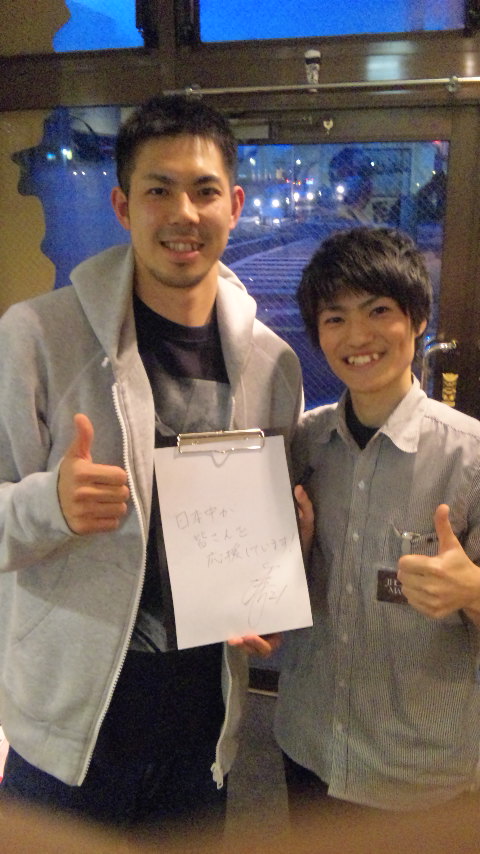 日本中が
皆さんを
応援しています!